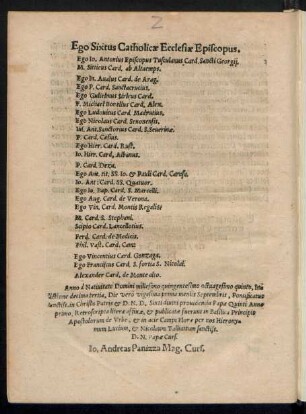 Ego Sixtus Catholicæ Ecclesiæ Episcopus.
Ego Io. Antonius Episcopus Tusculanus Card. Sancti Georgij.
M. Sitticus Card. ab Altaemps.
Ego In. Aualus Card. de Arag.
Ego P. Card. Sanctacrucius.
Ego Gulielmus Sirletus Card.
F. Michael Bonellus Card. Alex.
Ego Ludouicus Card. Madrutius.
Ego Nicolaus Card. Senonensis.
Iul. Ant. Sanctorius Card. S. Seuerinæ.
P. Card. Cæsius.
Ego Hier. Card. Rust.
Io. Hier. Card. Albanus.
P. Card. Deza.
Ego Ant. tit. SS. Io. & Pauli Card. Carafa.
Io. Ant: Card. SS. Quatuor.
Ego Io. Bap. Card. S. Marcelli.
Ego Aug. Card. de Verona.
Ego Vin. Card. Montis Regalis
M. Card. S. Stephani.
Scipio Card. Lancellottus.
Ferd. Card. de Medicis.
Phil. Vast. Card. Cam.
Ego Vincentius Card. Gonzaga.
Ego Franciscus Card. Sfortia S. Nicolai.
Alexander Card. de Monte alto.
Anno à Natiuitate Domini millesimo quingentesimo octuagesimo quinto, Indictione
decima tertia, Die verò vigesima prima mensis Septembris, Pontificatus
sanctiss. in Christo Patris & D. N. D. Sixti diuina prouidentia Papæ Quinti Anno
primo, Retroscriptæ literæ affixæ, & publicatæ fuerunt in Basilica Principis
Apostolorum de Vrbe, & in acie Campi Floræ per nos Hieronymum
Lucium, & Nicolaum Tallietum sanctiss.
D. N. Papæ Curs.
Io. Andreas Panizza Mag. Curs.